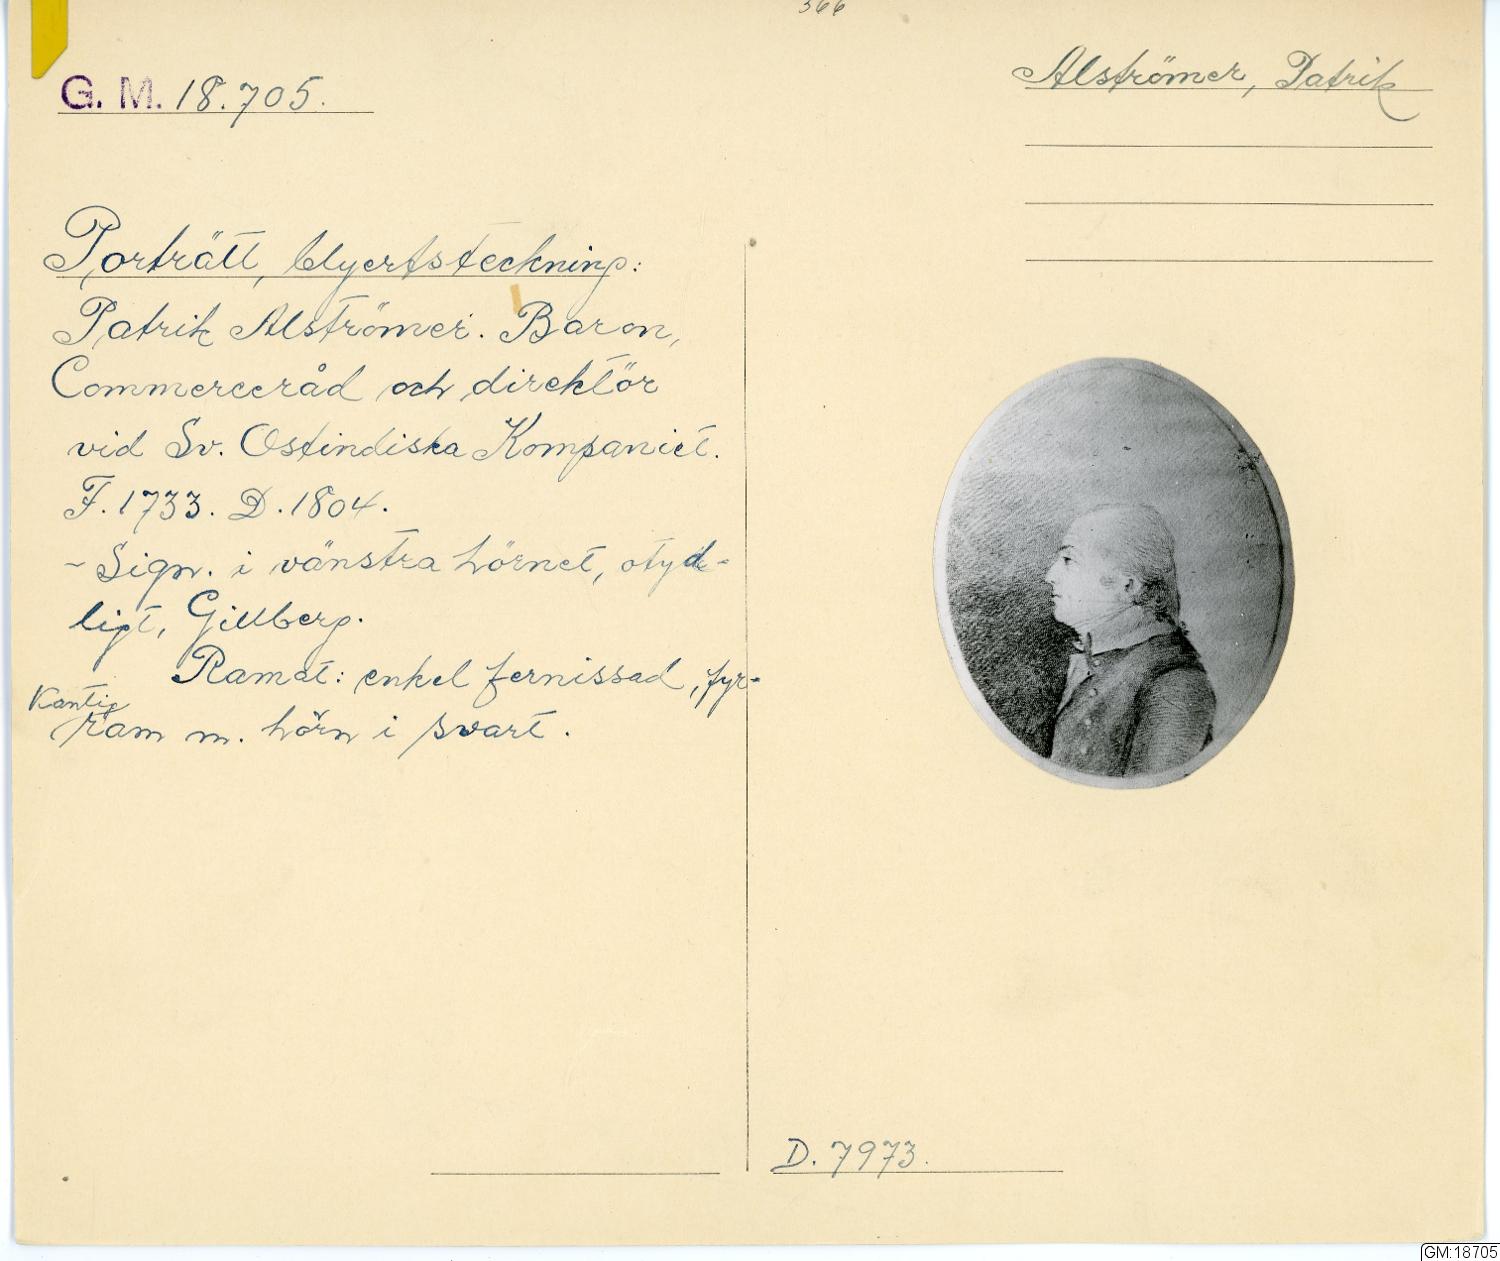 366
G. M. 18.705.
Alströmer, Patrik
Porträtt, blyertsteckning:
Patrik Alströmer. Baron,
Commerceråd och direktör
vid Sv. Ostindiska Kompaniet.
F. 1733. D. 1804.
- Sign. i vänstra hörnet, otyd-
ligt, Gillberg.
Ramat: enkel fernissad, fyr-
kantig
ram m. hörn i svart.
D. 7973.
GM:18705